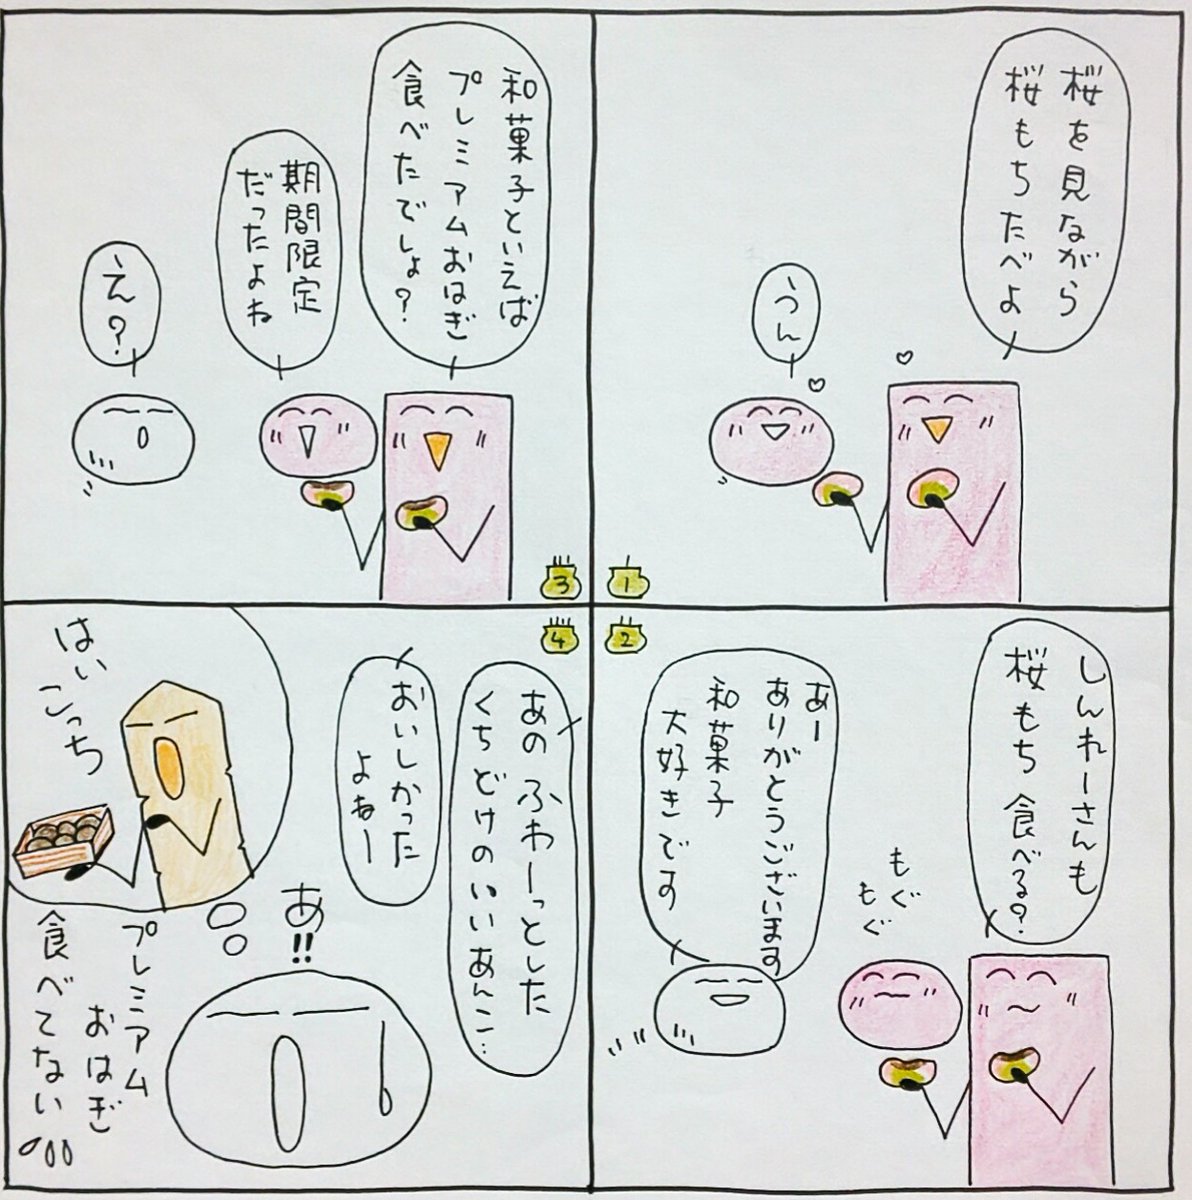 桜を見ながら
桜もちたべよ
うん
1
しんれーさんも
桜もち食べる?
もぐ
もぐ
あー
ありがとうございます
和菓子
大好きです
2
和菓子といえば
プレミアムおはぎ
食べたでしょ?
期間限定
だったよね
え?
3
4
あのふわーっとした
くちどけのいいあんこ…
おいしかった
よねー
あ!!
はい
こっち
プレミアム
おはぎ
食べてない